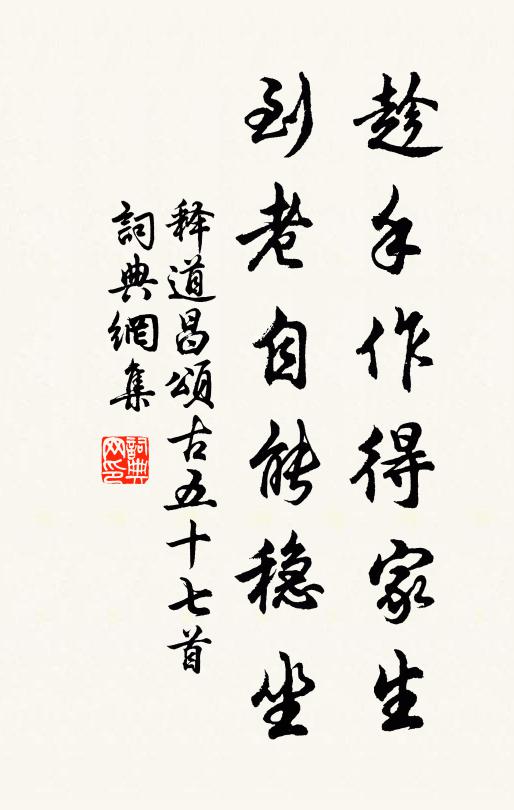 趁手作得家生
到老自能稳坐
释道昌頌古五十七首
詞典網集
詞典网印